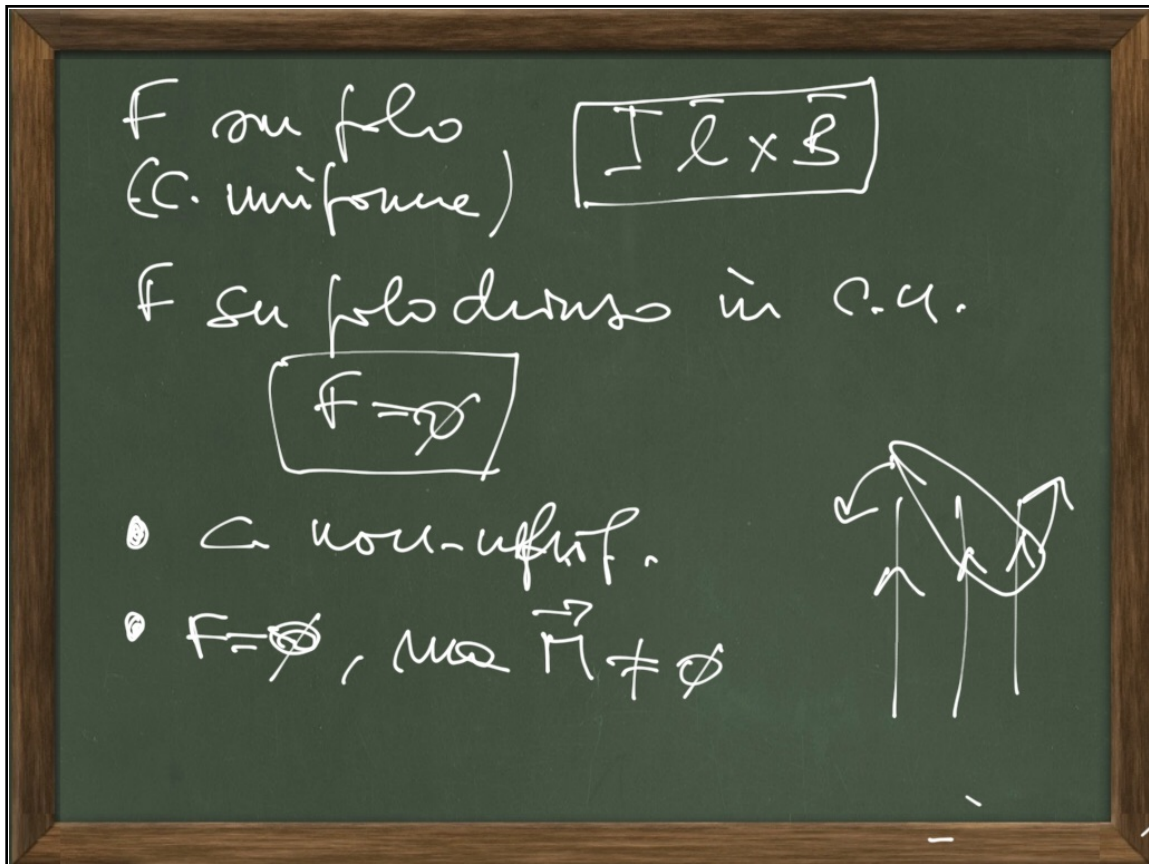 F su filo
(C. uniforme)
I l̅ x B̅
F su filo chiuso in c.u.
F = ∅
• C. non-unif.
• F = ∅, ma M⃗ ≠ ∅